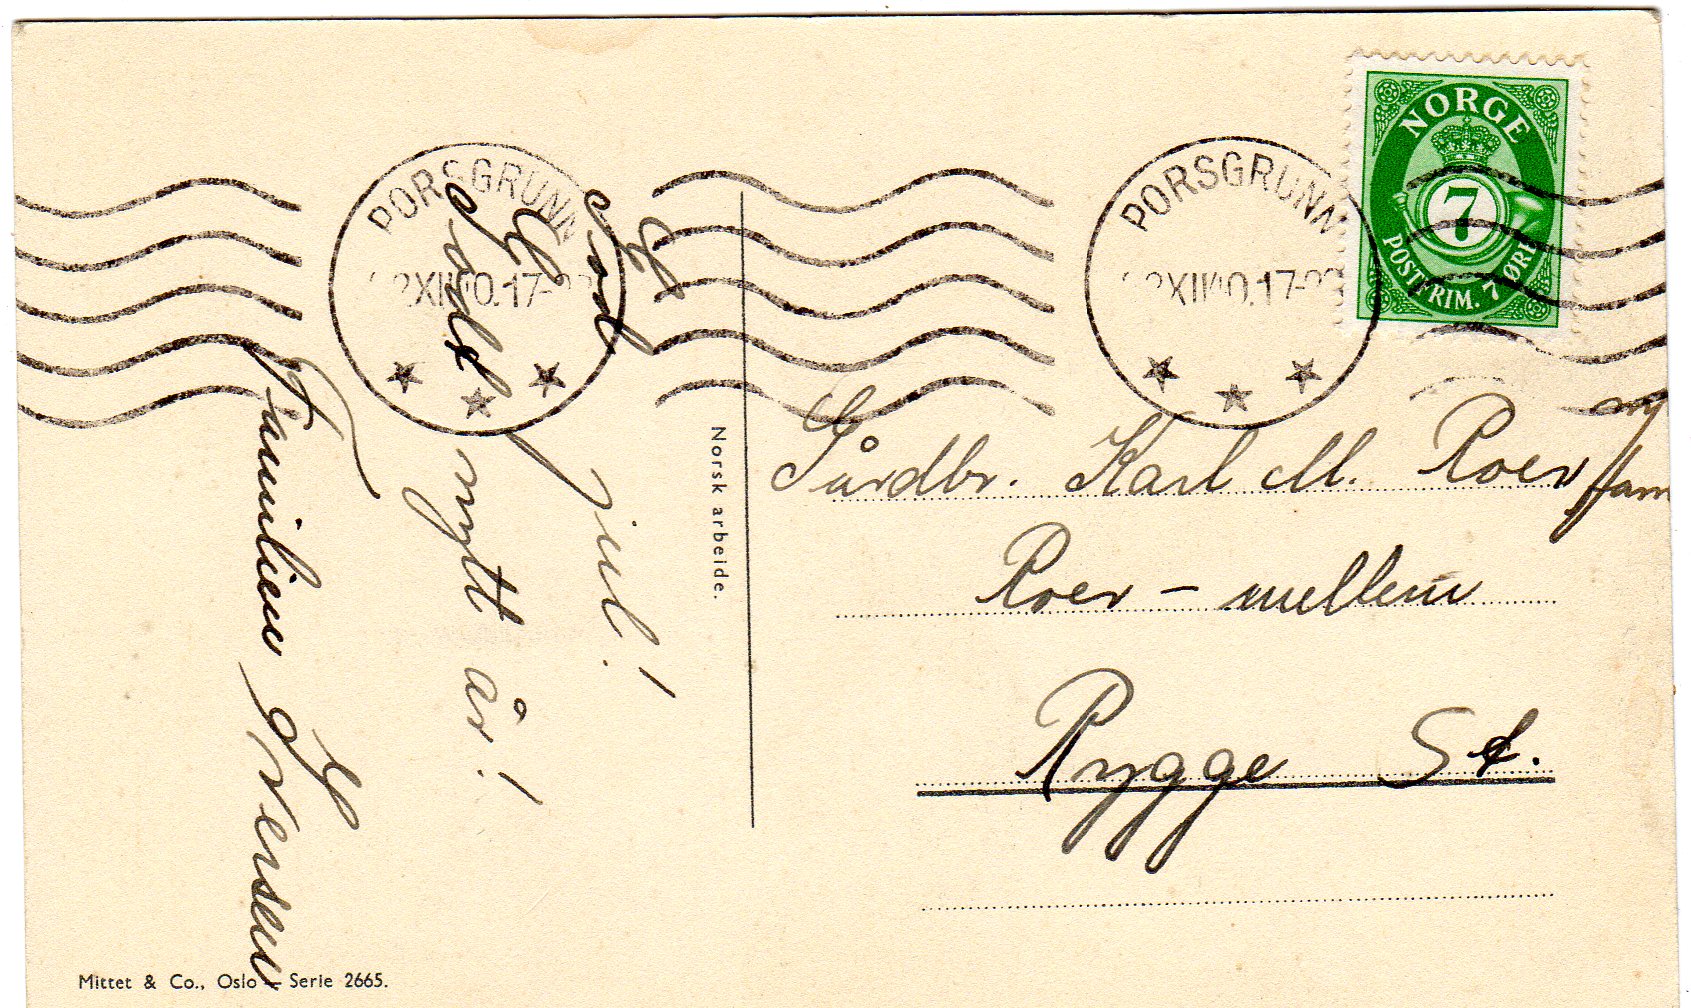 NORGE
7
POSTFRIM. 7 ØRE
PORSGRUNN
XII 40.17-
PORSGRUNN
XII 40.17-
God jul!
Godt nytt år!
Familien Iversen
Norsk arbeide.
Gårdbr. Karl M. Roer m/ fam
Roer - mellem
Rygge St.
Mittet & Co., Oslo - Serie 2665.